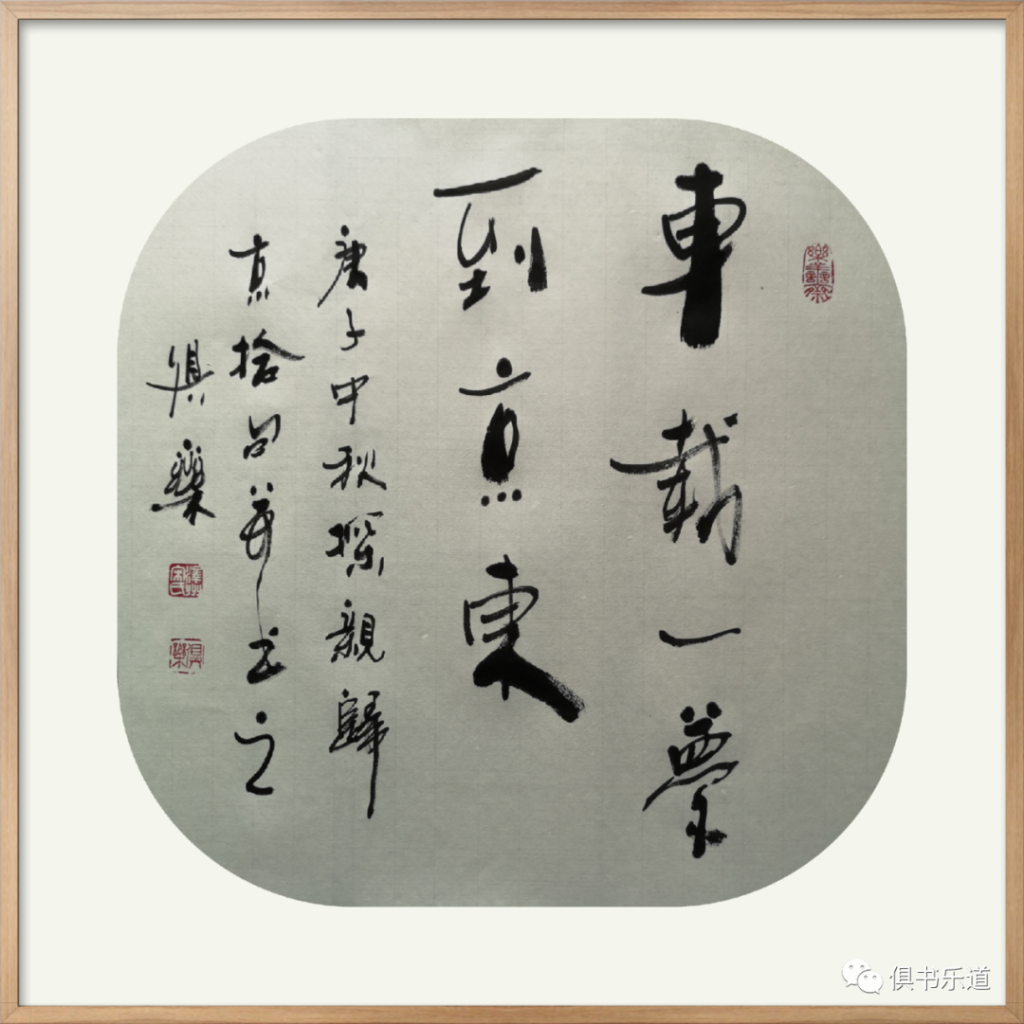 車載一夢
到京東
庚子中秋探親歸
京拾句并书之
俱樂
俱书乐道